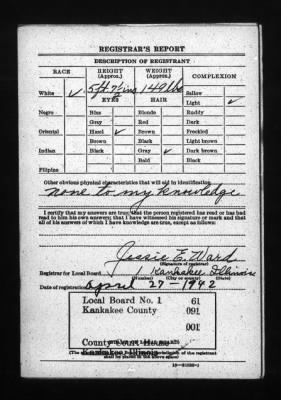 REGISTRAR'S REPORT
DESCRIPTION OF REGISTRANT
RACE
HEIGHT (Approx.)
WEIGHT (Approx.)
COMPLEXION
White ✓
5 ft. 7½ ins
149 lbs
Sallow
EYES
HAIR
Light ✓
Negro
Blue
Blonde
Ruddy
Gray
Red
Dark
Oriental
Hazel ✓
Brown
Freckled
Brown
Black
Light brown
Indian
Black
Gray ✓
Dark brown
Bald
Black
Filipino
Other obvious physical characteristics that will aid in identification
none to my knowledge
I certify that my answers are true; that the person registered has read or has had read to him his own answers; that I have witnessed his signature or mark and that all of his answers of which I have knowledge are true, except as follows:
Jessie E. Ward
(Signature of registrar)
Registrar for Local Board Kankakee, Illinois
(Number) (City or county) (State)
Date of registration April 27-1942
Local Board No. 1 61
Kankakee County 091
001
County Court House
Kankakee, Illinois